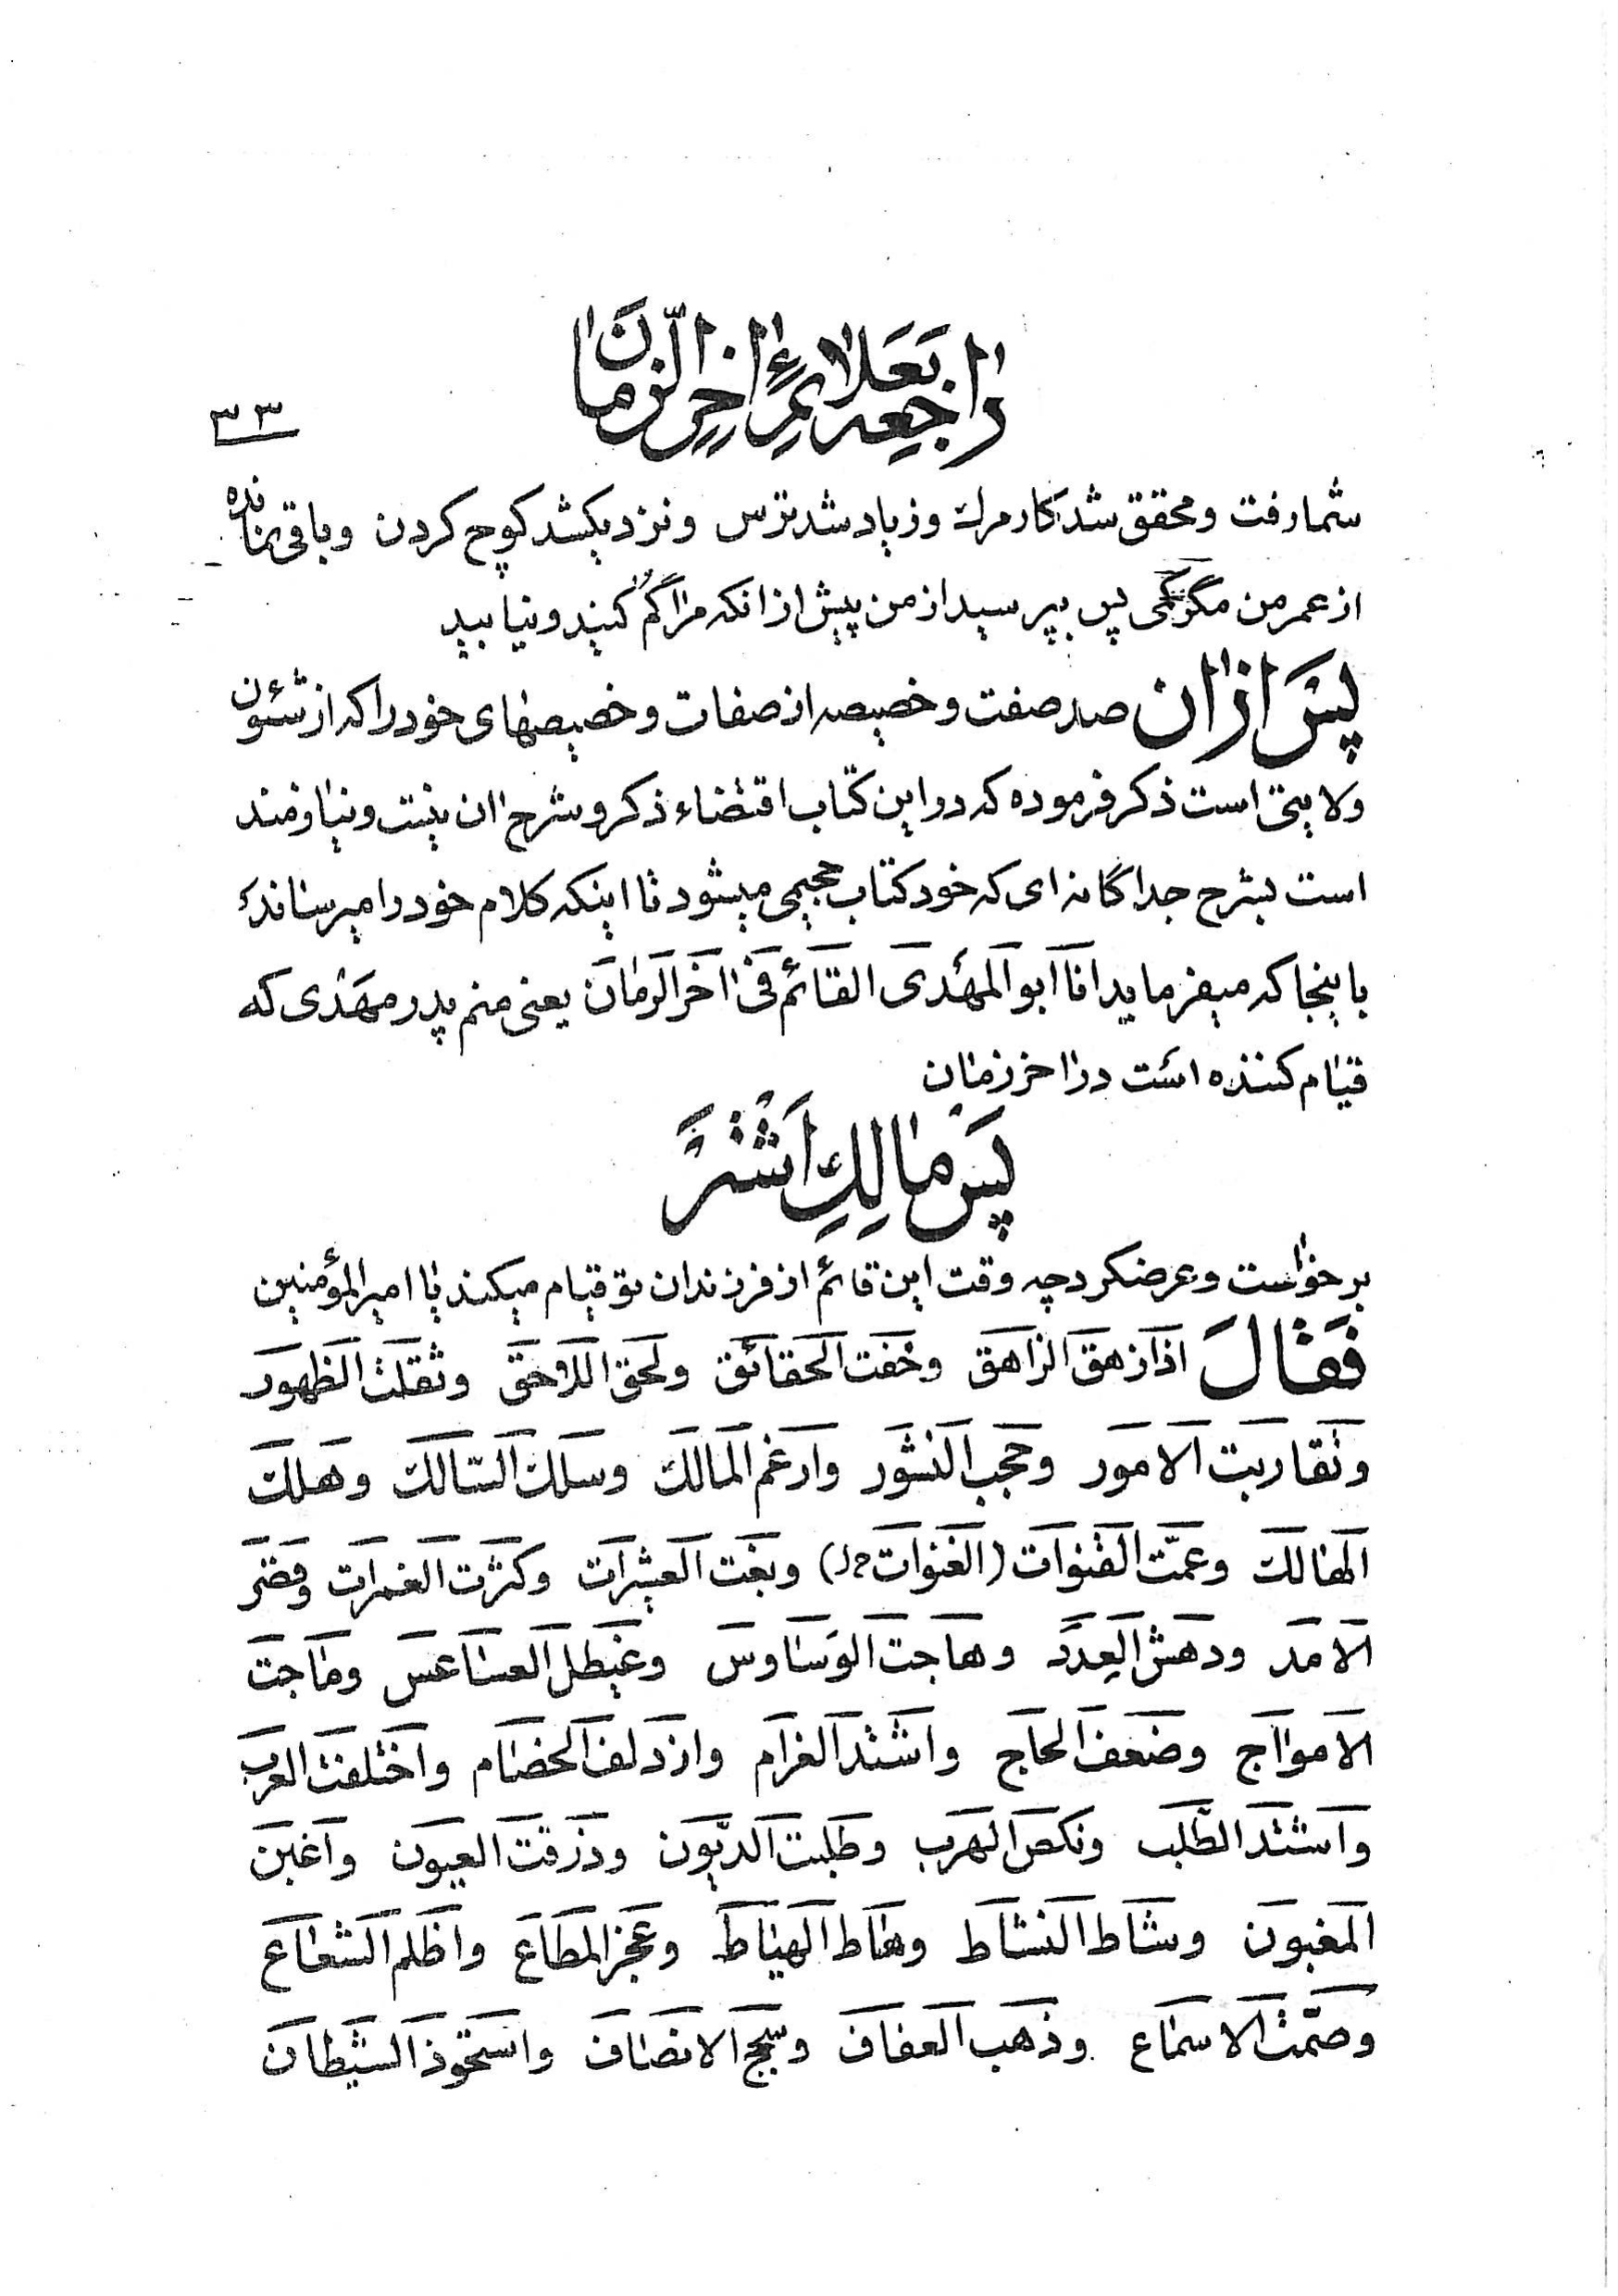 راجعه بعلائم اخر الزمان
۳۳
شما رفت و محقق شد کار مرك و زیاد شد ترس و نزدیکشد کوچ کردن و باقی نمانده
از عمر من مگر کمی پس بپرسید از من پیش از انکه مرا گم کنید و نیابید
پس از ان صد صفت و خصیصه از صفات و خصیصهای خود را که از شئون
ولایتی است ذکر فرموده که در این کتاب اقتضاء ذکر و شرح ان نیست و نیازمند
است بشرح جداگانه ای که خود کتاب حجیمی میشود تا اینکه کلام خود را میرساند
باینجا که میفرماید انا ابو المهدی القائم فی اخر الزمان یعنی منم پدر مهدی که
قیام کننده است در اخر زمان
پس مالك اشتر
برخواست و عرضکرد چه وقت این قائم از فرزندان تو قیام میکند یا امیر المؤمنین
فقال اذا زهق الزاهق وخفت الحقائق ولحق اللاحق وثقلت الظهور
وتقاربت الامور وحجب النشور وارغم المالك وسلك السالك وهلك
الهالك وعمت الفنوات (الغنوات خ ل) وبغت العشرات وكثرت الغمرات وقصر
الامد ودهش العدد وهاجت الوساوس وغيطل العساعس وماجت
الامواج وضعف الحاج واشتد الغرام وازدلف الخصام واختلفت العرب
واشتد الطلب ونكص الهرب وطلبت الديون وذرفت العيون واغبن
المغبون وشاط النشاط وهاط الهياط وعجز المطاع واظلم الشعاع
وصمت الاسماع وذهب العفاف وسجج الانصاف واستحوذ الشيطان